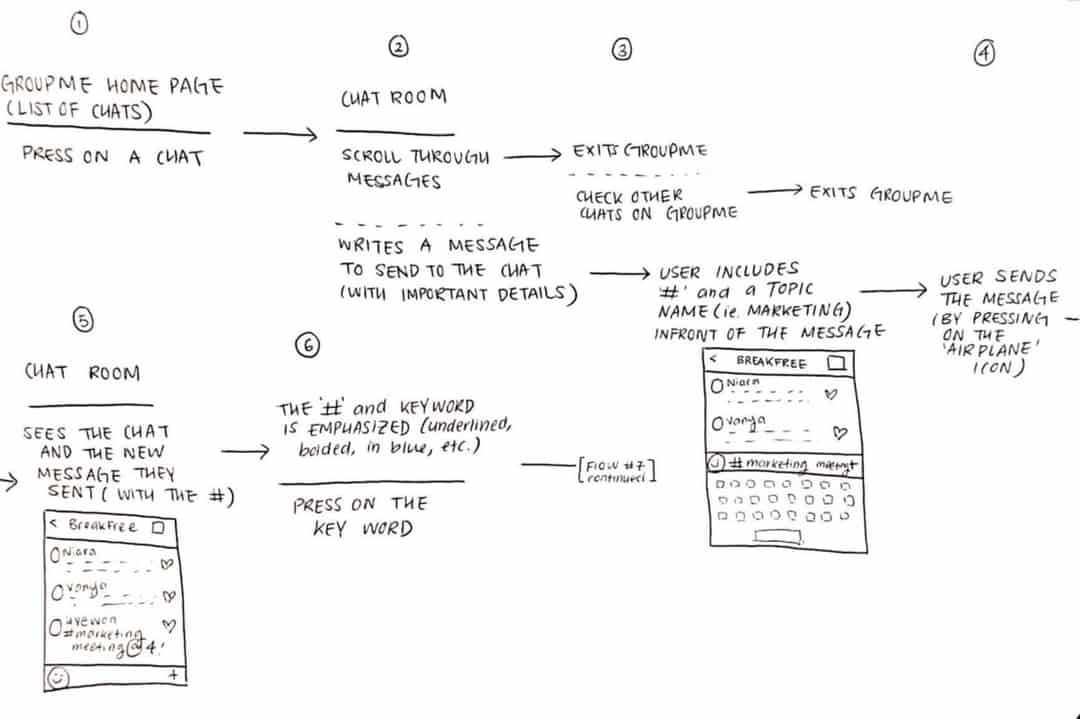 ①
GROUPME HOME PAGE
(LIST OF CHATS)
PRESS ON A CHAT
②
CHAT ROOM
SCROLL THROUGH
MESSAGES
WRITES A MESSAGE
TO SEND TO THE CHAT
(WITH IMPORTANT DETAILS)
③
EXITS GROUPME
CHECK OTHER
CHATS ON GROUPME
EXITS GROUPME
USER INCLUDES
'#' and a TOPIC
NAME (ie. MARKETING)
INFRONT OF THE MESSAGE
< BREAKFREE
Niara
Vanya
#marketing meeting
④
USER SENDS
THE MESSAGE
(BY PRESSING
ON THE
'AIRPLANE'
ICON)
⑤
CHAT ROOM
SEES THE CHAT
AND THE NEW
MESSAGE THEY
SENT (WITH THE #)
< BreakFree
Niara
Vanya
#marketing
meeting@4!
+
⑥
THE '#' and KEYWORD
IS EMPHASIZED (underlined,
bolded, in blue, etc.)
PRESS ON THE
KEY WORD
[Flow #7
continued]